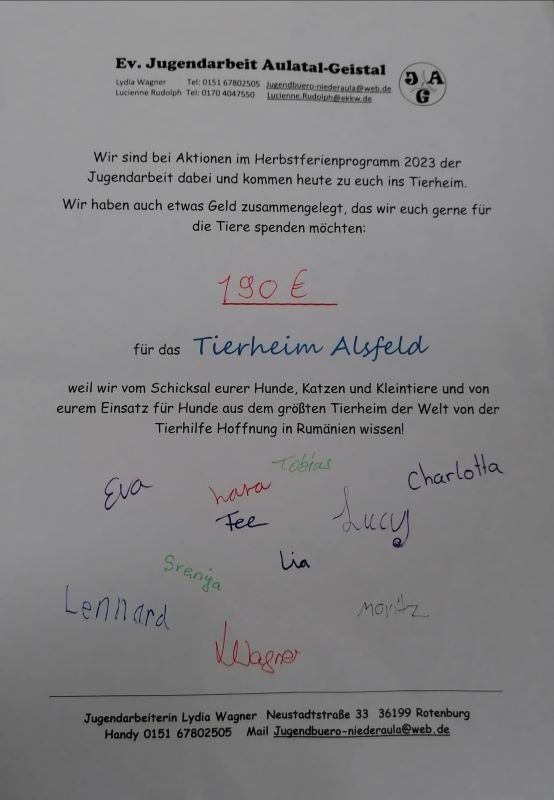 Ev. Jugendarbeit Aulatal-Geistal
Lydia Wagner Tel: 0151 67802505 Jugendbuero-niederaula@web.de
Lucienne Rudolph Tel: 0170 4047550 Lucienne.Rudolph@ekkw.de
J A G
Wir sind bei Aktionen im Herbstferienprogramm 2023 der
Jugendarbeit dabei und kommen heute zu euch ins Tierheim.
Wir haben auch etwas Geld zusammengelegt, das wir euch gerne für
die Tiere spenden möchten:
190 €
für das Tierheim Alsfeld
weil wir vom Schicksal eurer Hunde, Katzen und Kleintiere und von
eurem Einsatz für Hunde aus dem größten Tierheim der Welt von der
Tierhilfe Hoffnung in Rumänien wissen!
Tobias
Eva Lara Charlotta
Fee Lucy
Lia
Srenja
Lennard Moritz
LWagner
Jugendarbeiterin Lydia Wagner Neustadtstraße 33 36199 Rotenburg
Handy 0151 67802505 Mail Jugendbuero-niederaula@web.de